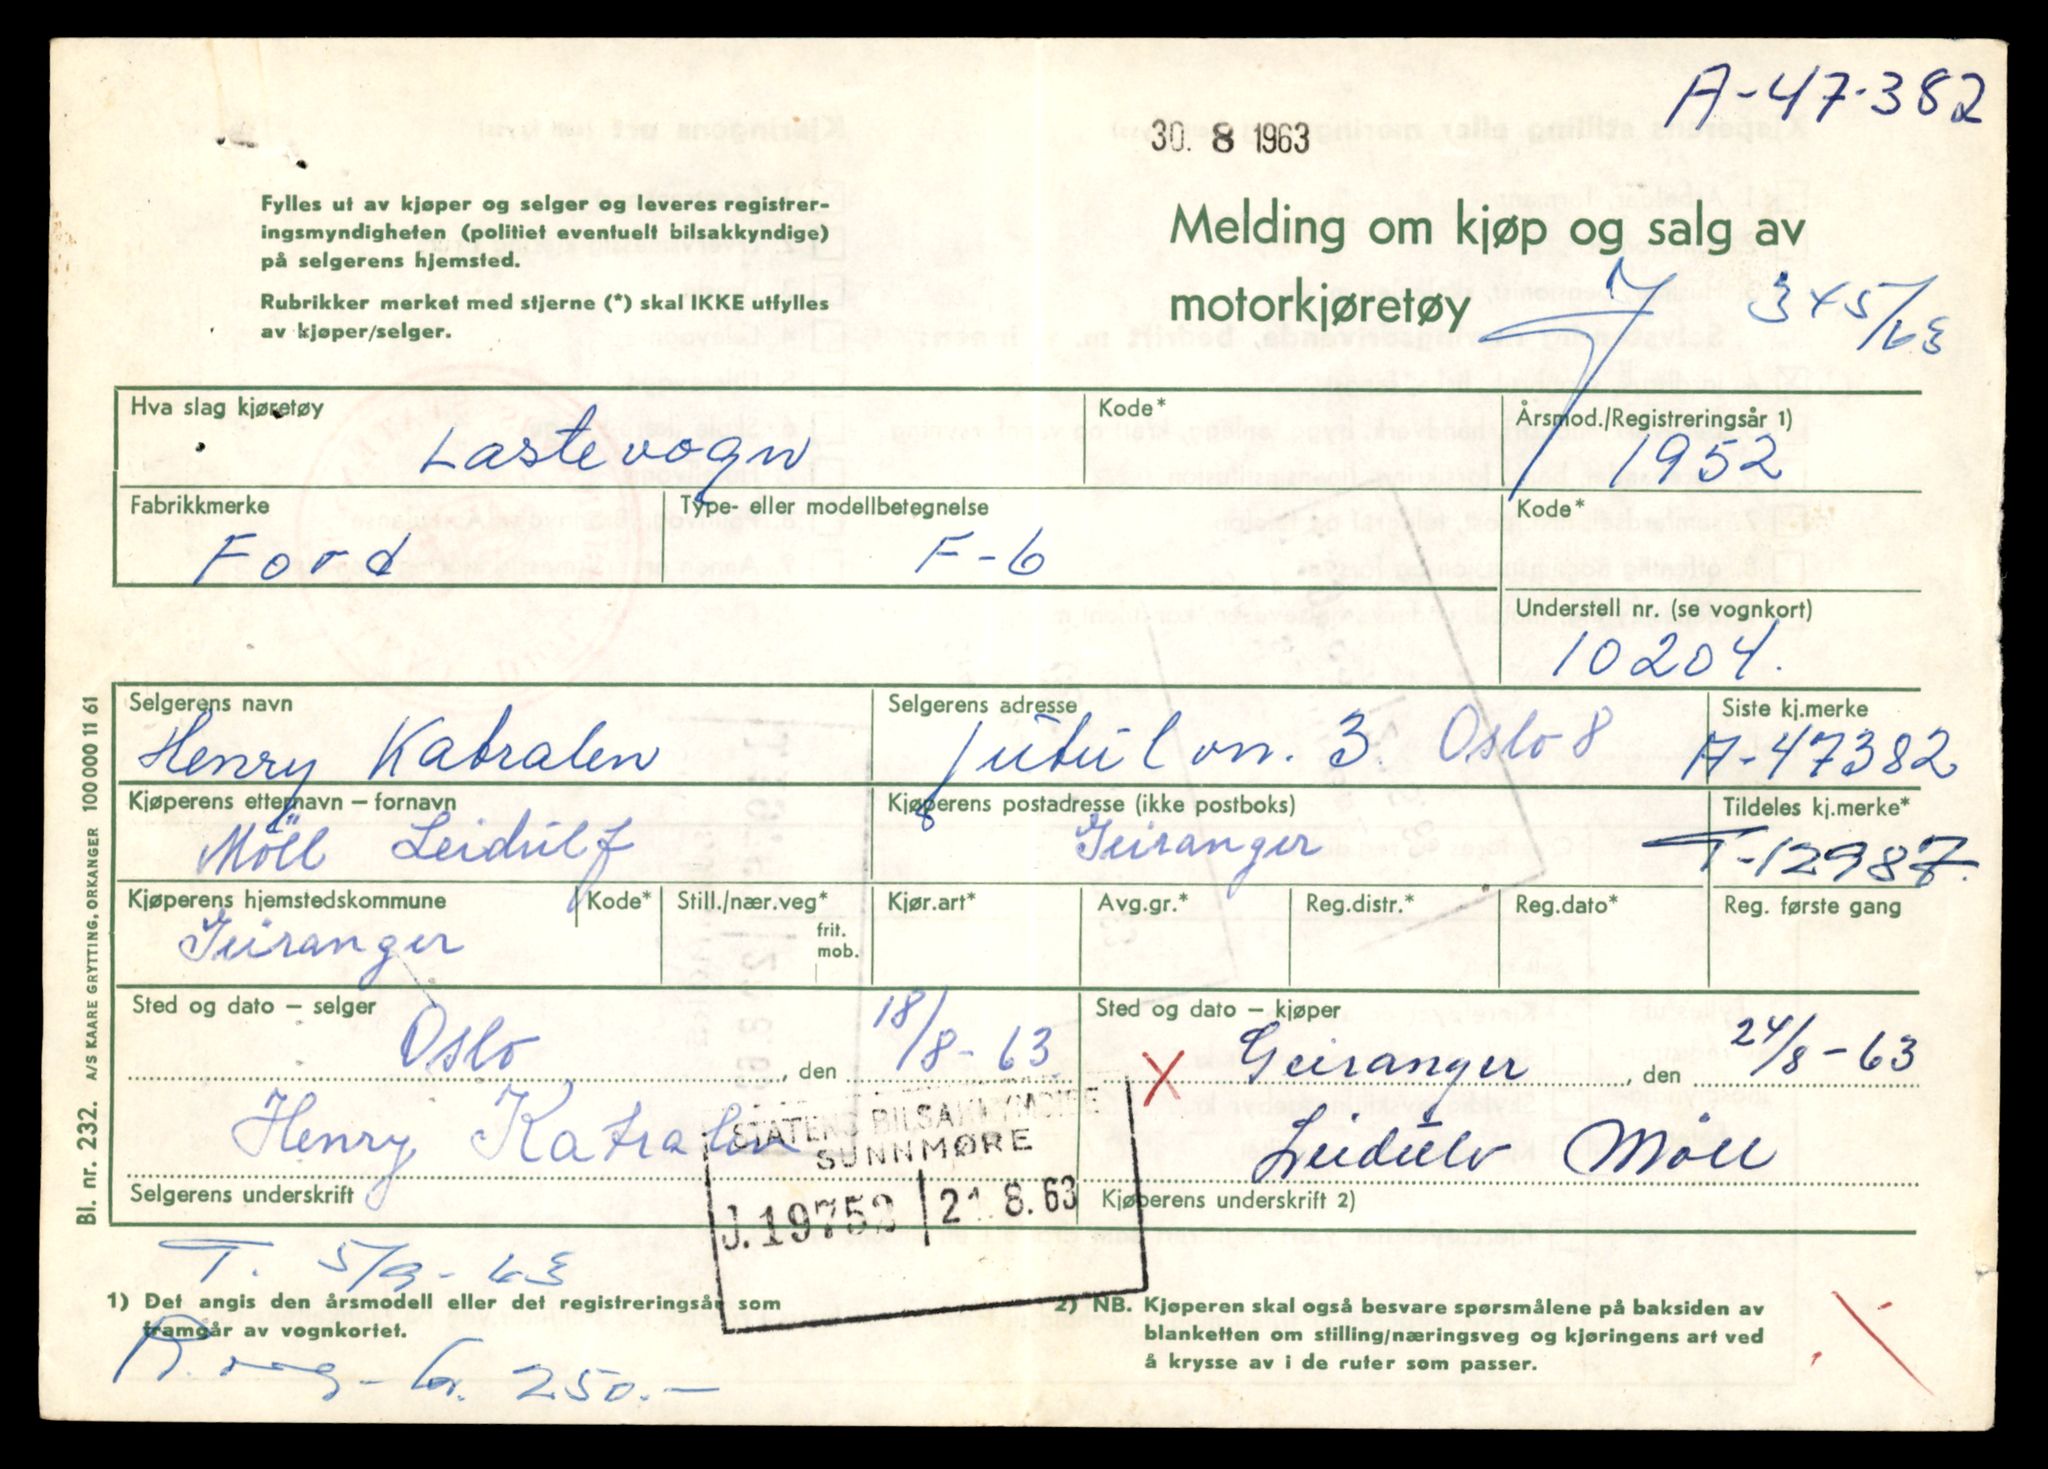 A-47-382
30. 8 1963
Fylles ut av kjøper og selger og leveres registrer-
ingsmyndigheten (politiet eventuelt bilsakkyndige)
på selgerens hjemsted.
Rubrikker merket med stjerne (*) skal IKKE utfylles
av kjøper/selger.
Melding om kjøp og salg av
motorkjøretøy
345/63
Hva slag kjøretøy
Lastevogn
Kode*
Årsmod./Registreringsår 1)
1952
Fabrikkmerke
Ford
Type- eller modellbetegnelse
F-6
Kode*
Understell nr. (se vognkort)
10204.
Selgerens navn
Henry Katralen
Selgerens adresse
Jutulvn. 3. Oslo 8
Siste kj.merke
A-47382
Kjøperens etternavn – fornavn
Möll Leidulf
Kjøperens postadresse (ikke postboks)
Geiranger
Tildeles kj.merke*
T-12987.
Kjøperens hjemstedskommune
Geiranger
Kode*
Still./nær.veg*
frit.
mob.
Kjør.art*
Avg.gr.*
Reg.distr.*
Reg.dato*
Reg. første gang
Sted og dato – selger
Oslo, den 18/8-63.
Henry Katralen
Selgerens underskrift
Sted og dato – kjøper
X Geiranger, den 24/8-63
Leidulv Möll
Kjøperens underskrift 2)
STATENS BILSAKKYNDIGE
SUNNMØRE
J.19752 21 8.63
T. 5/9-63
1) Det angis den årsmodell eller det registreringsår som
framgår av vognkortet.
kr. 250.-
2) NB. Kjøperen skal også besvare spørsmålene på baksiden av
blanketten om stilling/næringsveg og kjøringens art ved
å krysse av i de ruter som passer.
Bl. nr. 232. A/S KAARE GRYTTING, ORKANGER 100 000 11 61